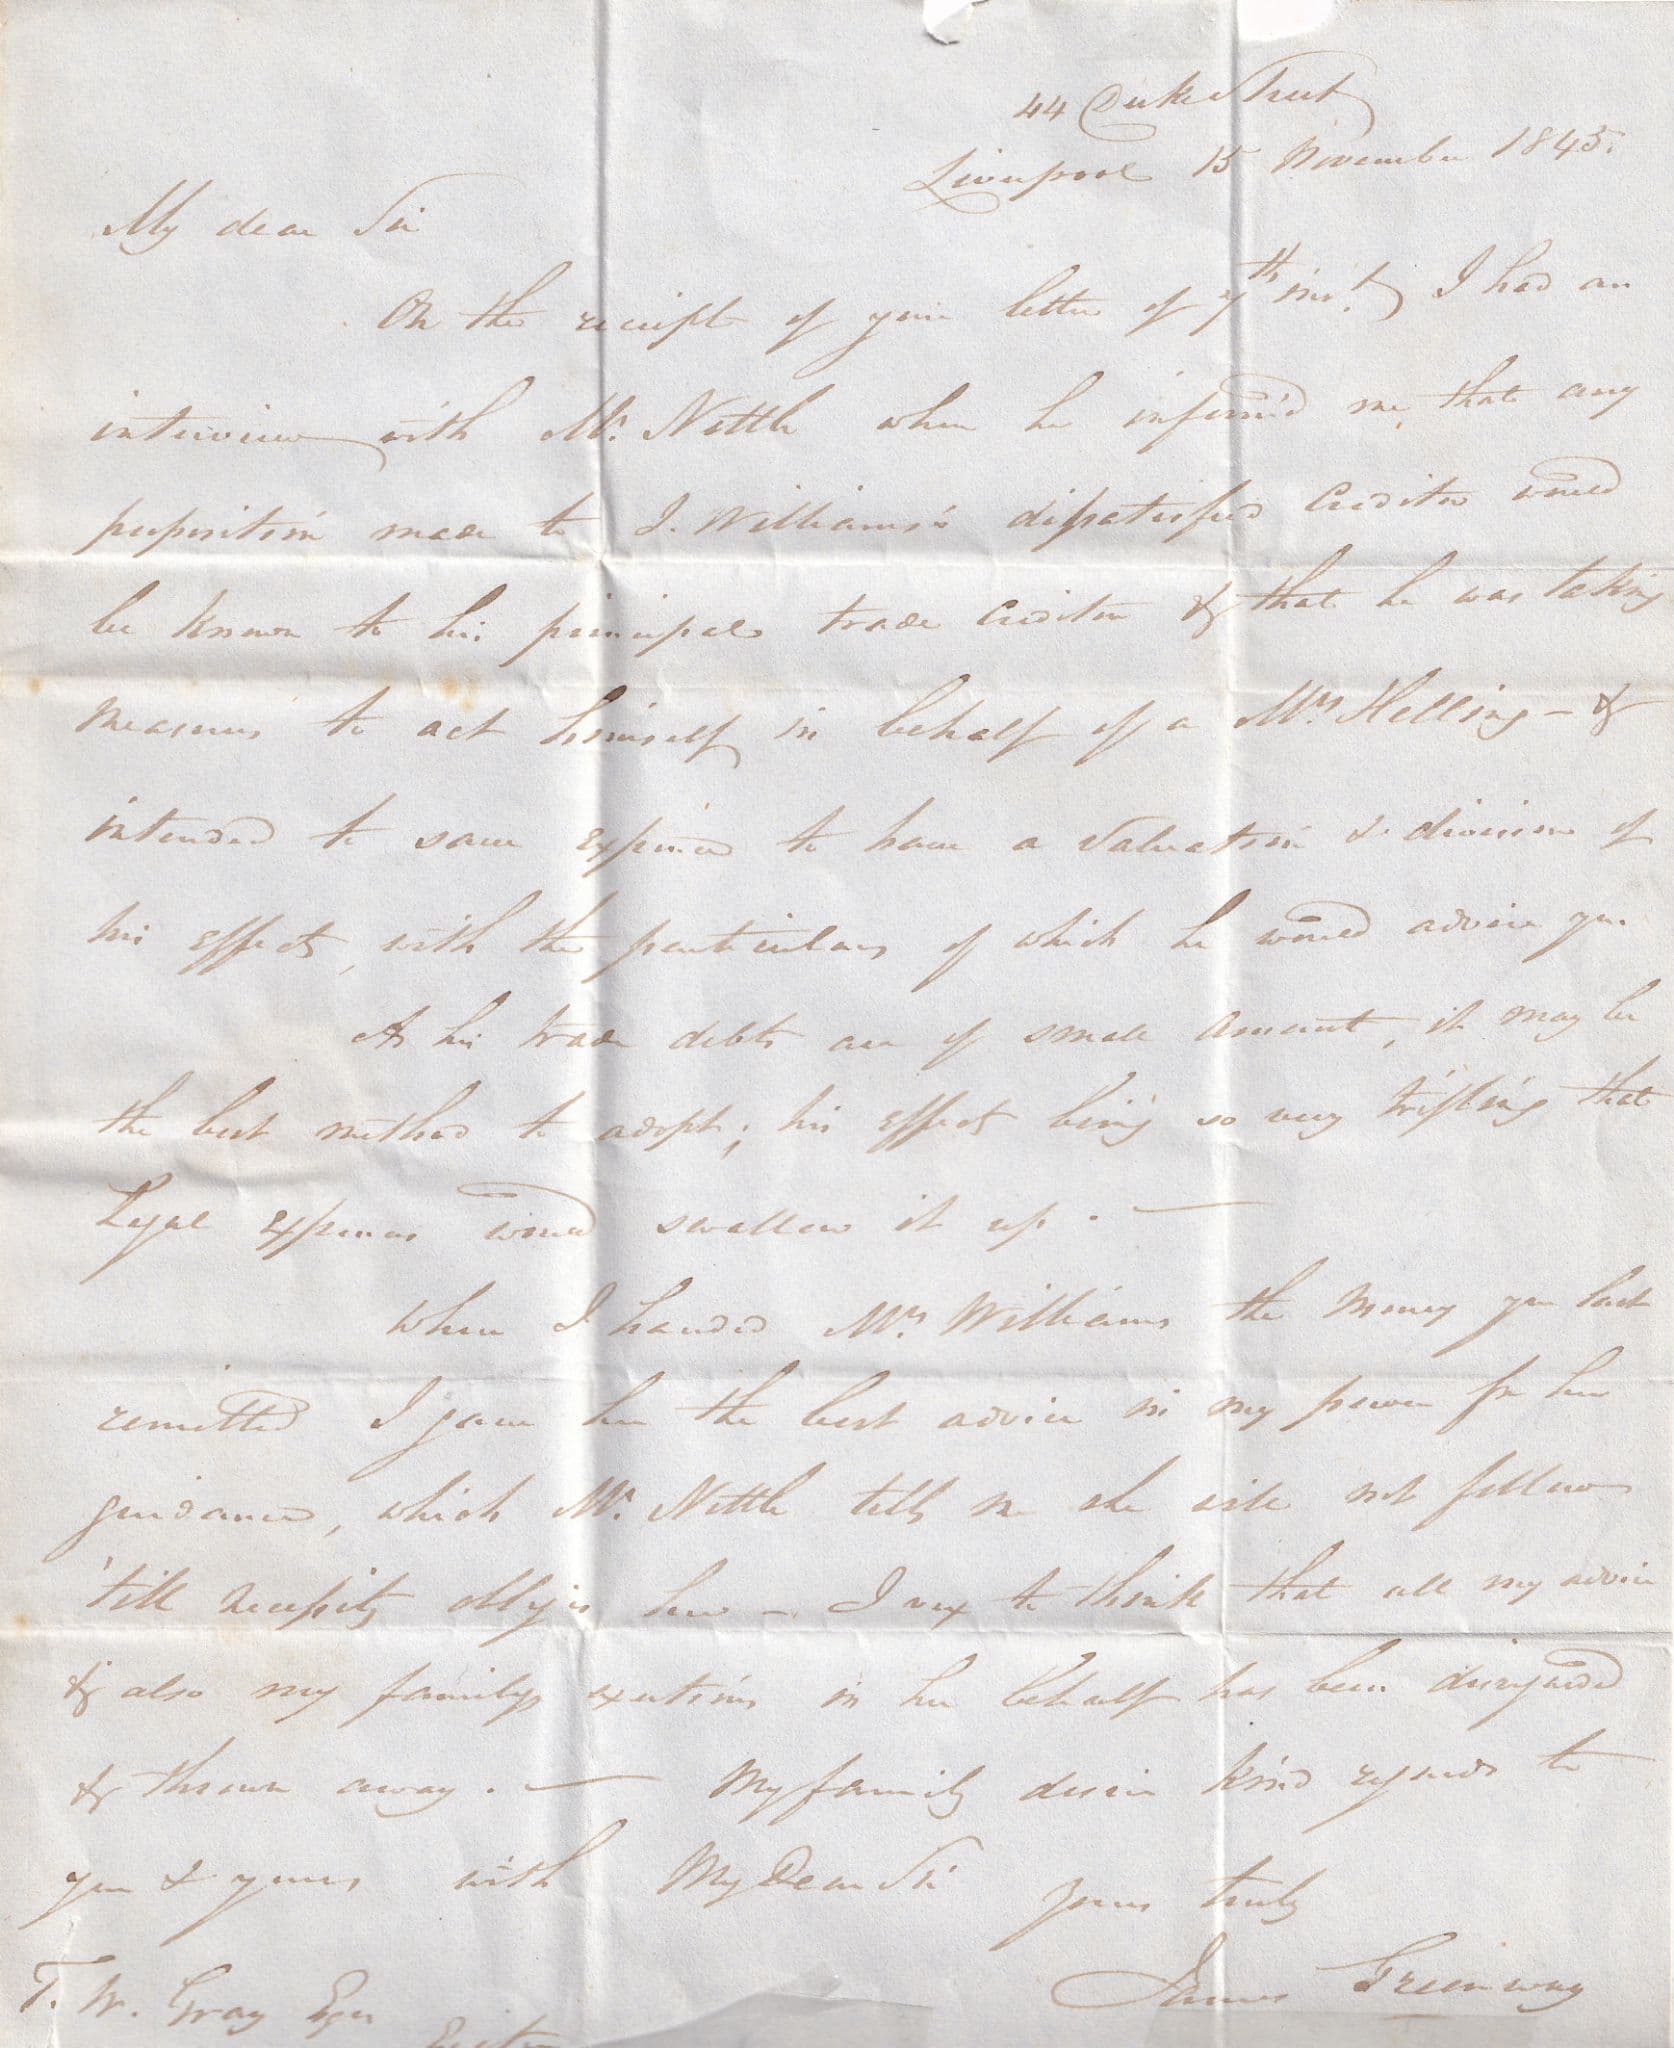 44 Duke Street
Liverpool 15 November 1845.
My dear Sir
On the receipt of your letter of 7th Inst. I had an
interview with Mr. Nettle when he inform'd me, that any
proposition made to J. Williams's dissatisfied Creditor would
be known to his principal trade Creditor & that he was taking
measures to act himself in behalf of a Mrs. Helling - &
intended to save expence to have a Valuation & division of
his effects, with the particulars of which he would advise you.
As his trade debts are of small amount, it may be
the best method to adopt; his effects being so very trifling that
Legal expences would swallow it up. —
When I handed Mrs. Williams the money you last
remitted I gave her the best advice in my power for her
guidance, which Mr. Nettle tells me she will not follow
'till necessity obliges her - I vex to think that all my advice
& also my familys exertions in her behalf has been disregarded
& thrown away. — My family desire kind regards to
you & yours with My Dear Sir yours truly
James Greenway
T. W. Gray Esqr